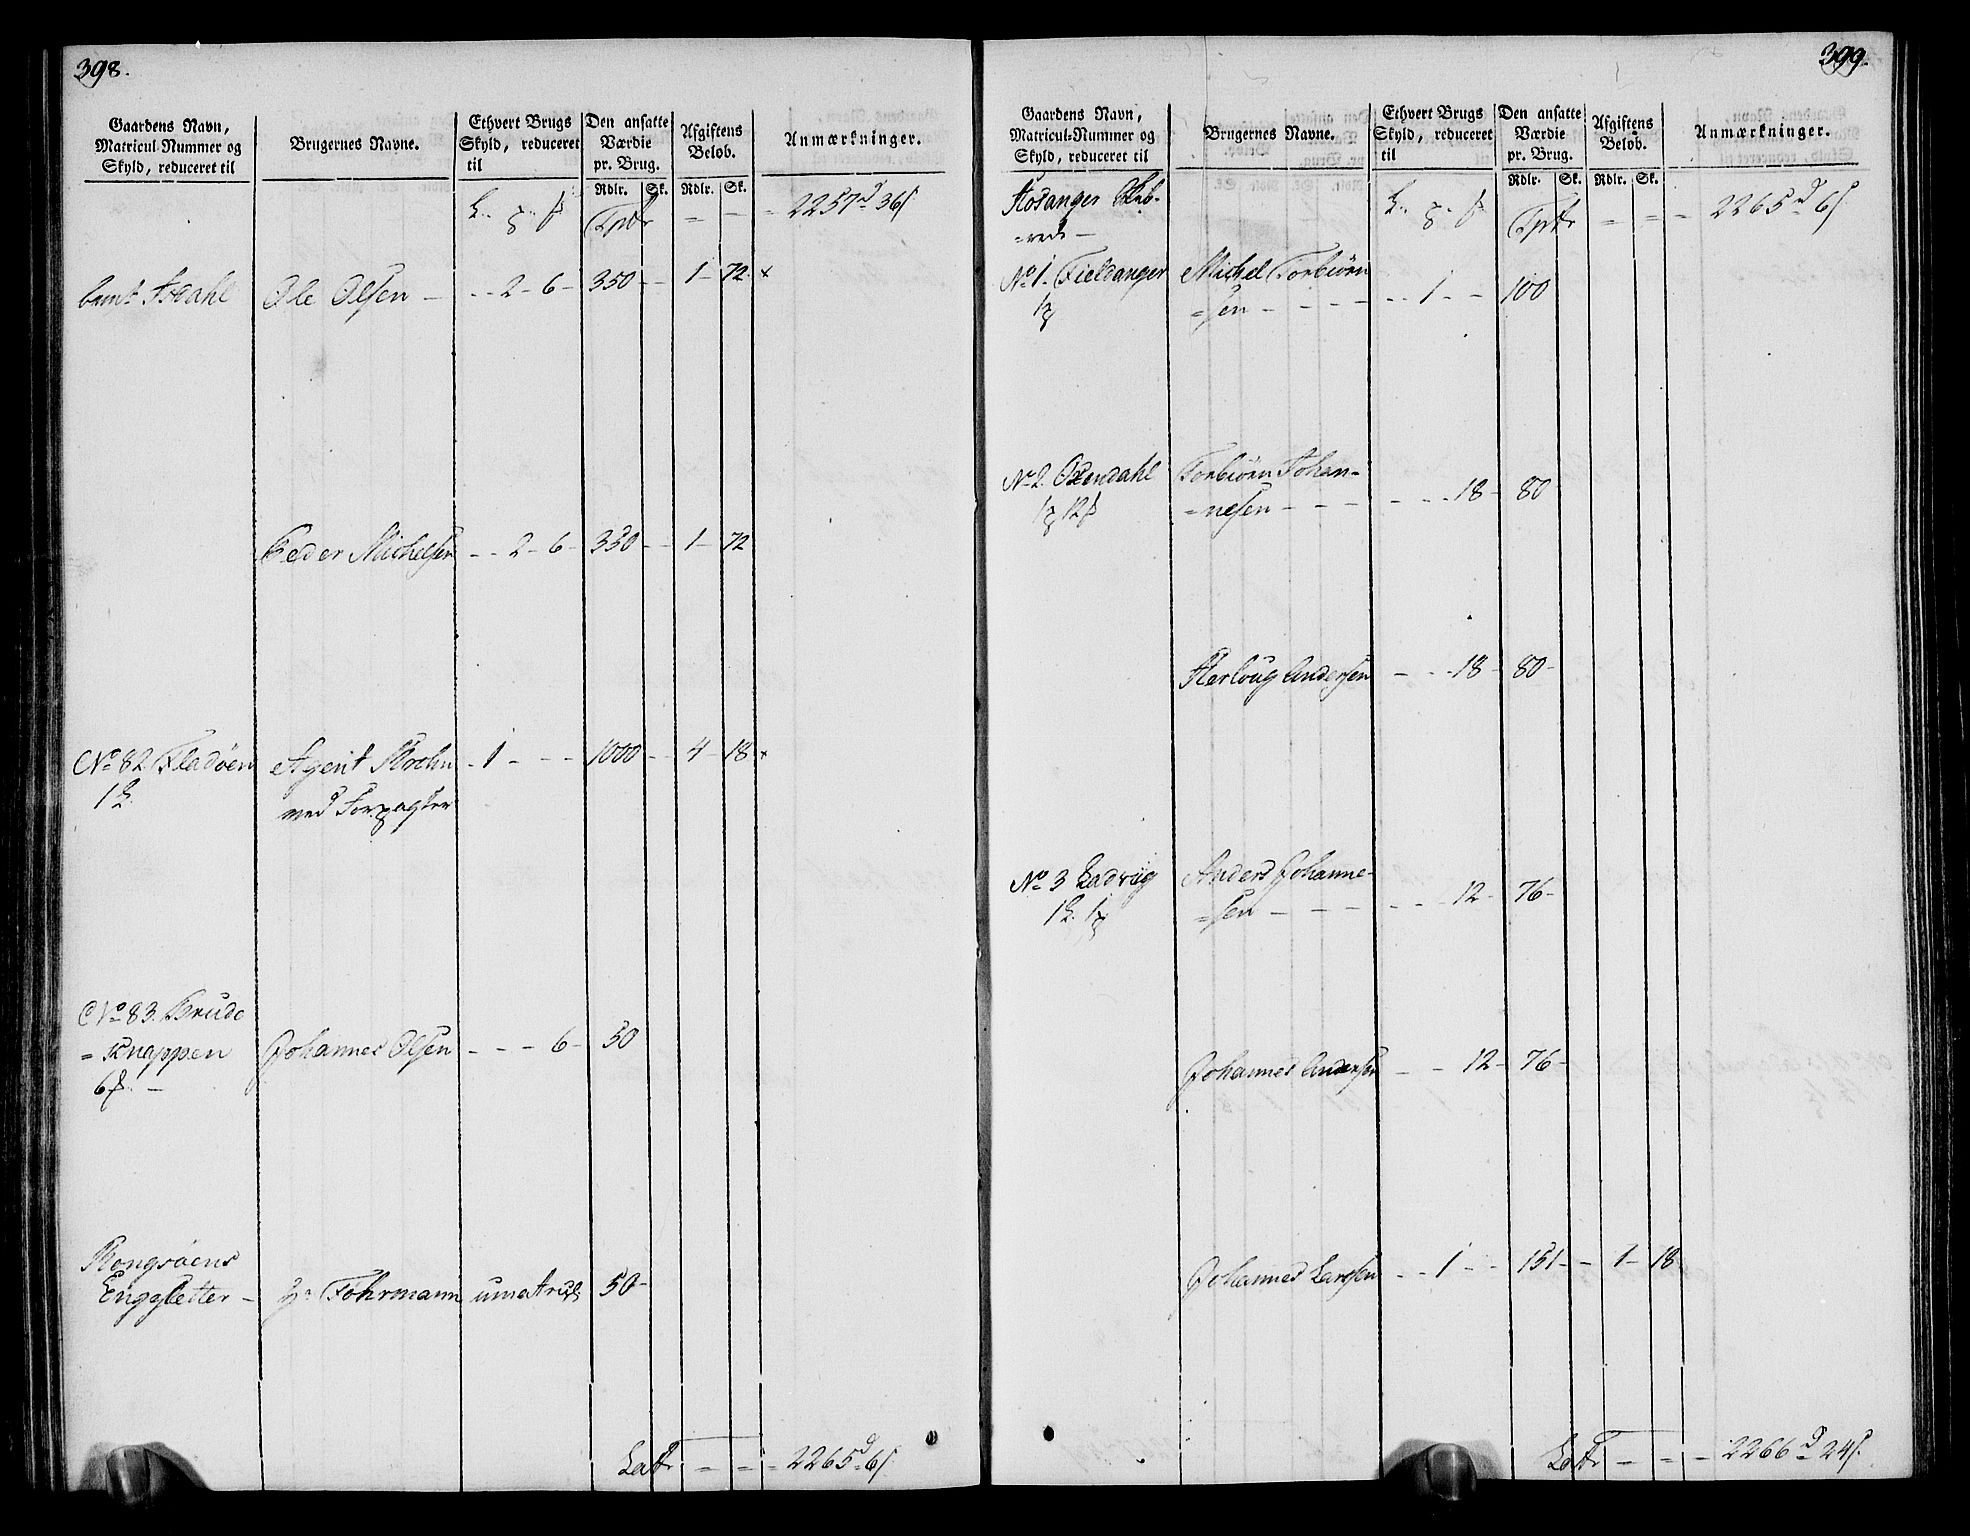 398.
Gaardens Navn,
Matricul-Nummer og
Skyld, reduceret til
Brugernes Navne.
Ethvert Brugs
Skyld, reduceret
til
Den ansatte
Værdie
pr. Brug.
Afgiftens
Beløb.
Anmærkninger.
Rdlr. Sk. Rdlr. Sk.
Tptr = — = 2257 d 36 ß
Ole Olsen - - - 2 - 6 - 350 - - 1 - 72 ×
Peder Michelsen - - 2 - 6 - 350 - - 1 - 72
No 82 Fladöen Agent Mohn - 1 - - - 1000 - - 4 - 18 ×
1 L. med Forpagter
No 83. Brude
=knappen Johannes Olsen - - - 6 - 50
6 ß. —
Rongsöens
Engesletter - Hr Fohrmann umatrik 50 -
Latr = — = 2265 d 6 ß
399.
Gaardens Navn,
Matricul-Nummer og
Skyld, reduceret til
Brugernes Navne.
Ethvert Brugs
Skyld, reduceret
til
Den ansatte
Værdie
pr. Brug.
Afgiftens
Beløb.
Anmærkninger.
Rdlr. Sk. Rdlr. Sk.
Hosanger Skib-
=rede — Tptr = = = 2265 d 6 ß
No 1. Fieldanger Michel Torbiörn
=sen - - - - - - 1 - - 100
No 2. Oxendahl Torbiörn Johan-
=nesen - - - - - - 18 - 80
Herloug Andersen - - - 18 - 80 -
No 3 Ladviig Anders Johanne-
=sen - - - - - - 12 - 76 -
Johannes Andersen - - 12 - 76 -
Johannes Larssen - - 1 - - 151 - - 1 - 18
Latr — = — 2266 d 24 ß.